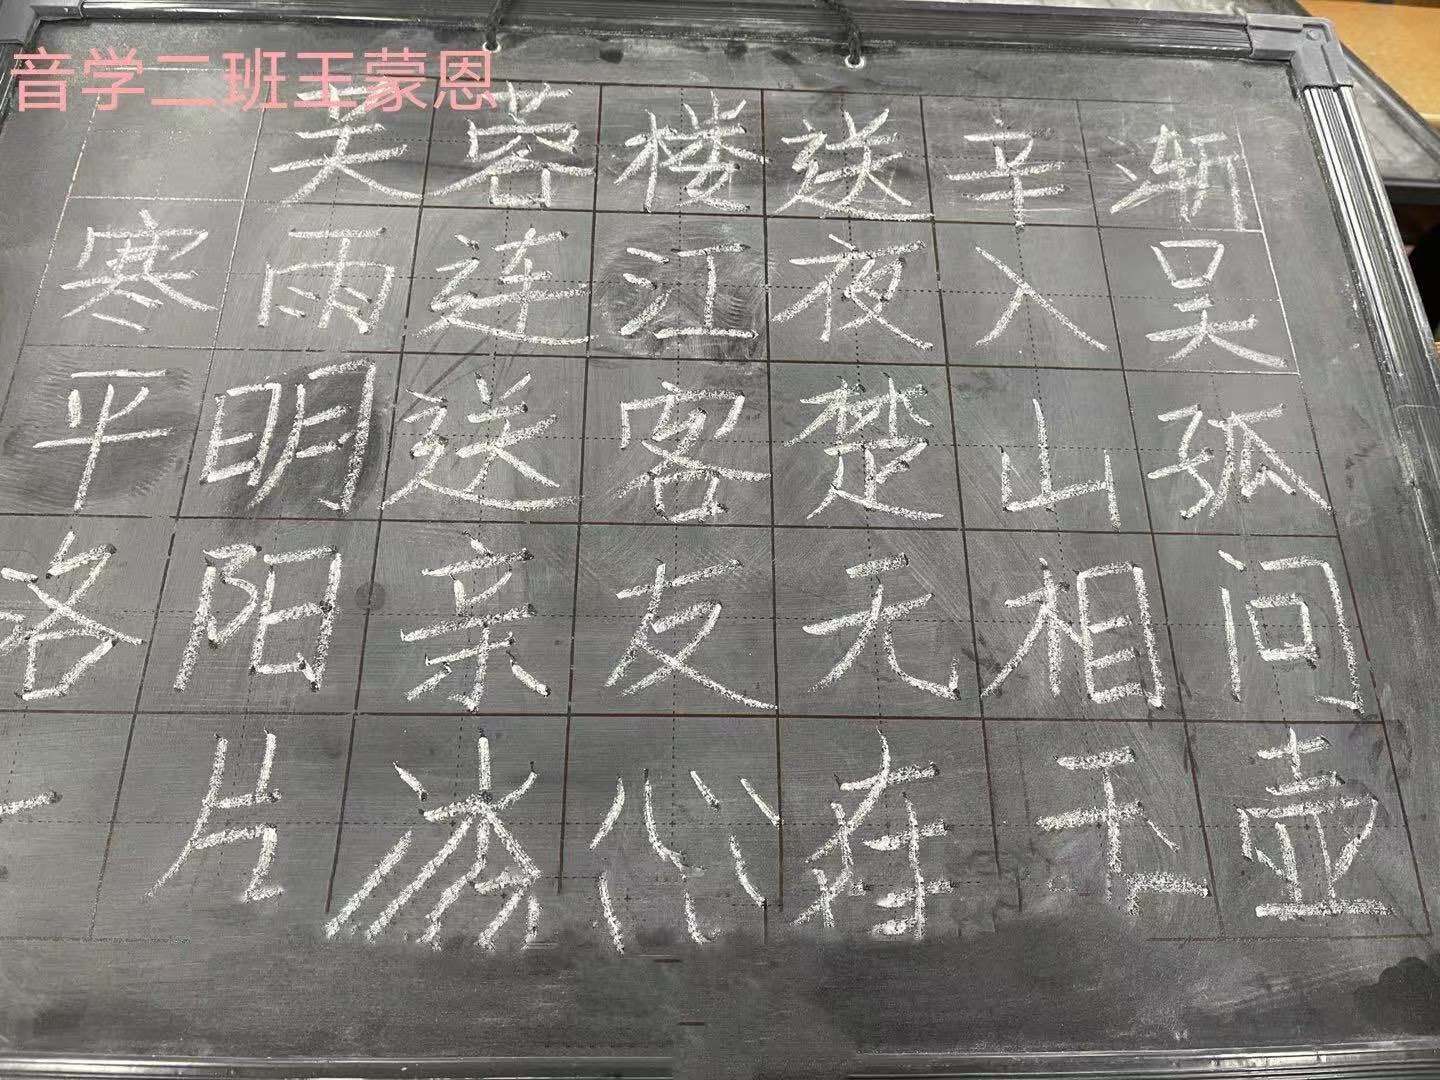 音学二班王蒙恩
芙蓉楼送辛渐
寒雨连江夜入吴
平明送客楚山孤
洛阳亲友无相问
一片冰心在玉壶